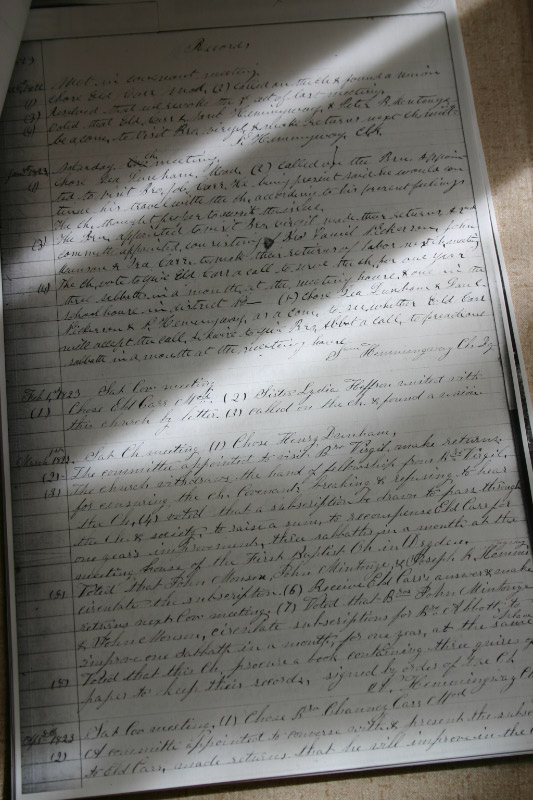 Records
Met in covenant meeting.
(1) Chose Eld. Carr Mod, (2) Called on the ch & found a union
(3) Resolved that we revoke the 1st act of last meeting.
(4) Voted that Eld. Carr & Hemingway, & Peter
be a com. to visit Bro. & make returns next Ch. meet
Hemingway Clk.
Saturday Ch. meeting.
(1) Chose Dunham, Mod. (2) Called upon the Brn. appoin
ted to visit Bro. Job Carr. He being present said he would con
tinue his travel with the ch, according to his present feelings
The ch. thought proper to
(3) The Brn. appointed to visit Bro. Virgil made their returns, & a
committee appointed, consisting of Bro. Daniel Pickerson, John
Munson & Ira Carr, to make their returns of labor next ch. meeting
(4) The ch. vote to give Eld. Carr a call to serve the ch. for one year
three sabbaths in a month, at the meeting house, & one in the
school house in district No (5) Chose Dunham & Danl.
Pickerson & R. Hemingway, as a com. to see whether Eld. Carr
will accept the call, & desire to give Bro. Abbot a call, to preach one
sabbath in a month at the meeting house
Hemmingway Ch. Clk
Feb. 1st 1823 Sat Cov. meeting
(1) Chose Eld. Carr Mod. (2) Sister Lydia Hoffman united with
this church by letter. (3) Called on the Ch. & found a union
March 1st 1823. Sat. Ch. meeting (1) Chose Henry Dunham,
(2) The committee appointed to visit Bro. Virgil, make returns.
(3) The church withdraws the hand of fellowship from Bro. Virgil,
for censuring the ch. Covenant breaking & refusing to hear
the Ch. (4) voted that a subscription be drawn to pass through
the Ch. & society, to raise a sum, to recompense Eld. Carr for
one years improvement, three sabbaths in a month at the
meeting house of the First Baptist Ch. in
(5) Voted that John Monson, John Mintonge, & Joseph R. Hemmin
circulate the subscription. (6) Receive Eld. Carrs answer & make
returns next Cov. meeting. (7) Voted that Brn. John Mintonge
& John Monson, circulate subscriptions for Bro. Abbott to
improve one sabbath in a month, for one year, at the same
(8) Voted that this Ch. procure a book containing three quires of
paper to keep their records, signed by order of the Ch
Hemmingway C
Sat Cov. meeting, (1) Chose Bro. Chauncy Carr Mod
(2) A committe appointed to converse with & present the subs
to Eld Carr, made returns that he will improve in the